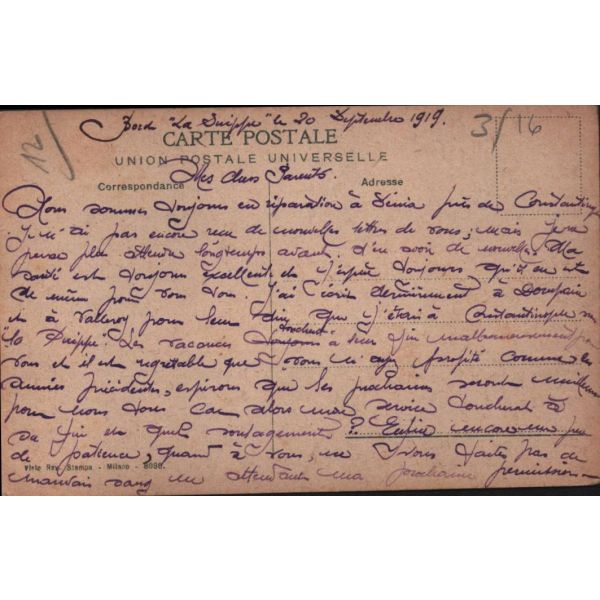 12
3/16
Bord "La Suippe" le 20 Septembre 1919.
CARTE POSTALE
UNION POSTALE UNIVERSELLE
Mes chers Parents.
Correspondance
Adresse
Nous sommes toujours en réparation à près de Constantinople
Je n'ai pas encore reçu de nouvelles lettres de vous; mais je ne
pense plus attendre longtemps avant d'en avoir de nouvelles. Ma
santé est toujours excellente et j'espère toujours qu'il en est
de même pour vous tous. J'ai écrit dernièrement à
et à Valleroy pour leur dire que j'étais à Constantinople sur
"la Suippe". Les vacances touchent à leur fin malheureusement pour
vous et il est regrettable que vous n'ayez profité comme les
années précédentes, espérons que les prochaines seront meilleures
pour nous tous car alors mon service touchera à
sa fin et quel soulagement ? Enfin encore un peu
de patience, quant à vous, ne vous faites pas de
Viste Rev. Stampa - Milano - 8098.
mauvais sang en attendant ma prochaine permission